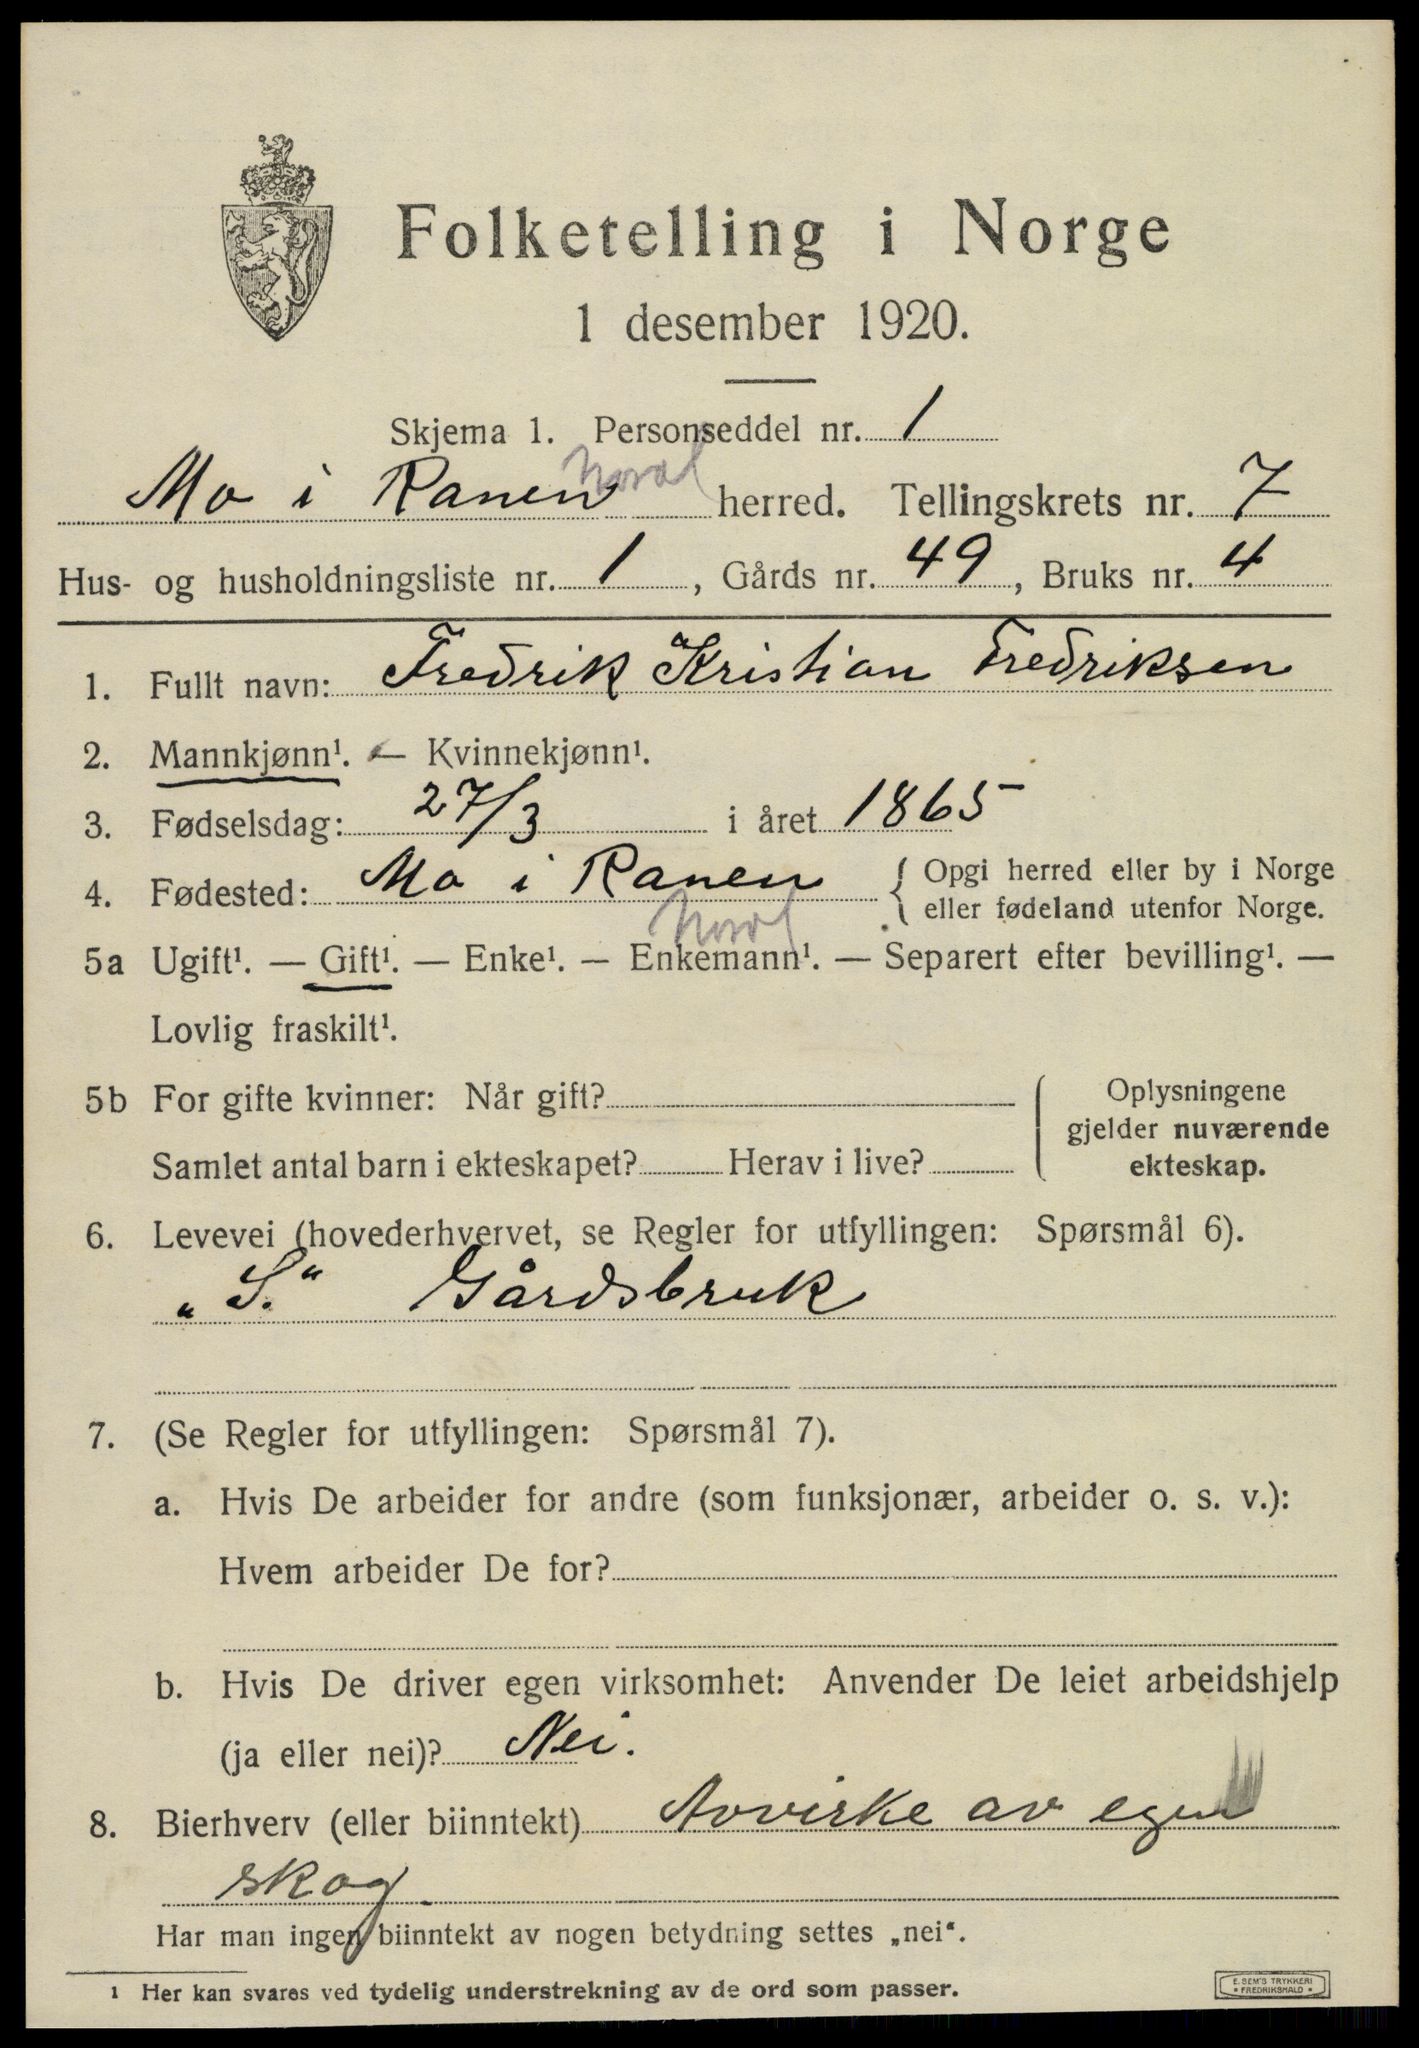 Folketelling i Norge
1 desember 1920.
Skjema 1. Personseddel nr. 1
Mo i Ranen Nord herred. Tellingskrets nr. 7
Hus- og husholdningsliste nr. 1, Gårds nr. 49, Bruks nr. 4
1. Fullt navn: Fredrik Kristian Fredriksen
2. Mannkjønn¹. — Kvinnekjønn¹.
3. Fødselsdag: 27/3 i året 1865
4. Fødested: Mo i Ranen { Opgi herred eller by i Norge
eller fødeland utenfor Norge.
Nord
5a Ugift¹. — Gift¹. — Enke¹. — Enkemann¹. — Separert efter bevilling¹. —
Lovlig fraskilt¹.
5b For gifte kvinner: Når gift?
Samlet antal barn i ekteskapet? Herav i live?
Oplysningene
gjelder nuværende
ekteskap.
6. Levevei (hovederhvervet, se Regler for utfyllingen: Spørsmål 6).
„S.“ Gårdsbruk
7. (Se Regler for utfyllingen: Spørsmål 7).
a. Hvis De arbeider for andre (som funksjonær, arbeider o. s. v.):
Hvem arbeider De for?
b. Hvis De driver egen virksomhet: Anvender De leiet arbeidshjelp
(ja eller nei)? Nei.
8. Bierhverv (eller biinntekt) Avvirke av egen
skog.
Har man ingen biinntekt av nogen betydning settes „nei“.
¹ Her kan svares ved tydelig understrekning av de ord som passer.
E. SEM'S TRYKKERI
• FREDRIKSHALD •